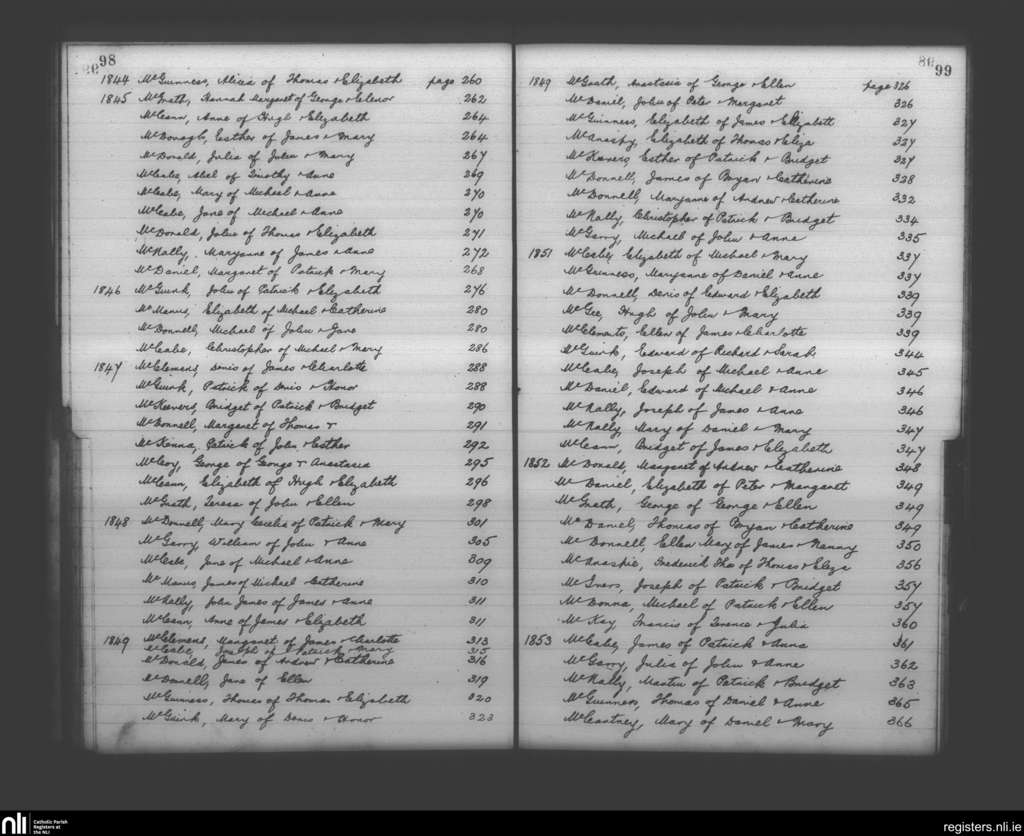 98
1844 McGuinness, Alicia of Thomas & Elizabeth page 260
1845 McGrath, Hannah Margaret of George & Elenor 262
McCann, Anne of Hugh & Elizabeth 264
McDonagh, Esther of James & Mary 264
McDonald, Julia of John & Mary 267
McCabe, of Timothy & Anne 269
McCabe, Mary of Michael & Anne 270
McCabe, Jane of Michael & Anne 270
McDonald, John of Thomas & Elizabeth 271
McNally, Maryanne of James & Anne 272
McDaniel, Margaret of Patrick & Mary 268
1846 McGuirk, John of Patrick & Elizabeth 276
McManus, Elizabeth of Michael & Catherine 280
McDonnell, Michael of John & Jane 280
McCabe, Christopher of Michael & Mary 286
1847 McClemens, Denis of James & Charlotte 288
McGuirk, Patrick of Denis & Honor 288
McKeevers, Bridget of Patrick & Bridget 290
McDonnell, Margaret of Thomas & 291
McKenna, Patrick of John & Esther 292
McCoy, George of George & Anastasia 295
McCann, Elizabeth of Hugh & Elizabeth 296
McGrath, Teresa of John & Ellen 298
1848 McDonnell, Mary Cecelia of Patrick & Mary 301
McGarry, William of John & Anne 305
McCabe, Jane of Michael & Anne 309
McManus, James of Michael & Catherine 310
McNally, John James of James & Anne 311
McCann, Anne of James & Elizabeth 311
1849 McClemens, Margaret of James & Charlotte 313
McCabe, Joseph of Patrick & Mary 315
McDonald, James of Andrew & Catherine 316
McDonnell, Jane of Ellen 319
McGuinness, Thomas of Thomas & Elizabeth 320
McGuirk, Mary of Denis & Honor 323
99
1849 McGrath, Anastasia of George & Ellen page 326
McDaniel, John of Peter & Margaret 326
McGuinness, Elizabeth of James & Elizabeth 327
McAnaspy, Elizabeth of Thomas & Eliza 327
McKevers, Esther of Patrick & Bridget 327
McDonnell, James of Bryan & Catherine 328
McDonnell, Maryanne of Andrew & Catherine 332
McNally, Christopher of Patrick & Bridget 334
McGarry, Michael of John & Anne 335
1851 McCabe, Elizabeth of Michael & Mary 337
McGuinness, Maryanne of Daniel & Anne 337
McDonnell, Denis of Edward & Elizabeth 339
McGee, Hugh of John & Mary 339
McClements, Ellen of James & Charlotte 339
McGuirk, Edward of Richard & Sarah 344
McCabe, Joseph of Michael & Anne 345
McDaniel, Edward of Michael & Anne 346
McNally, Joseph of James & Anne 346
McNally, Mary of Daniel & Mary 347
McCann, Bridget of James & Elizabeth 347
1852 McDonald, Margaret of Andrew & Catherine 348
McDaniel, Elizabeth of Peter & Margaret 349
McGrath, George of George & Ellen 349
McDaniel, Thomas of Bryan & Catherine 349
McDonnell, Ellen Mary of James & Nanny 350
McAnaspie, Frederick Thos of Thomas & Eliza 356
McIvers, Joseph of Patrick & Bridget 357
McDonna, Michael of Patrick & Ellen 357
McKay, Francis of Terence & Julia 360
1853 McCabe, James of Patrick & Anne 361
McGarry, Julia of John & Anne 362
McNally, Martin of Patrick & Bridget 363
McGuinness, Thomas of Daniel & Anne 365
McCartney, Mary of Daniel & Mary 366
nli
Catholic Parish
Registers at
the NLI
registers.nli.ie